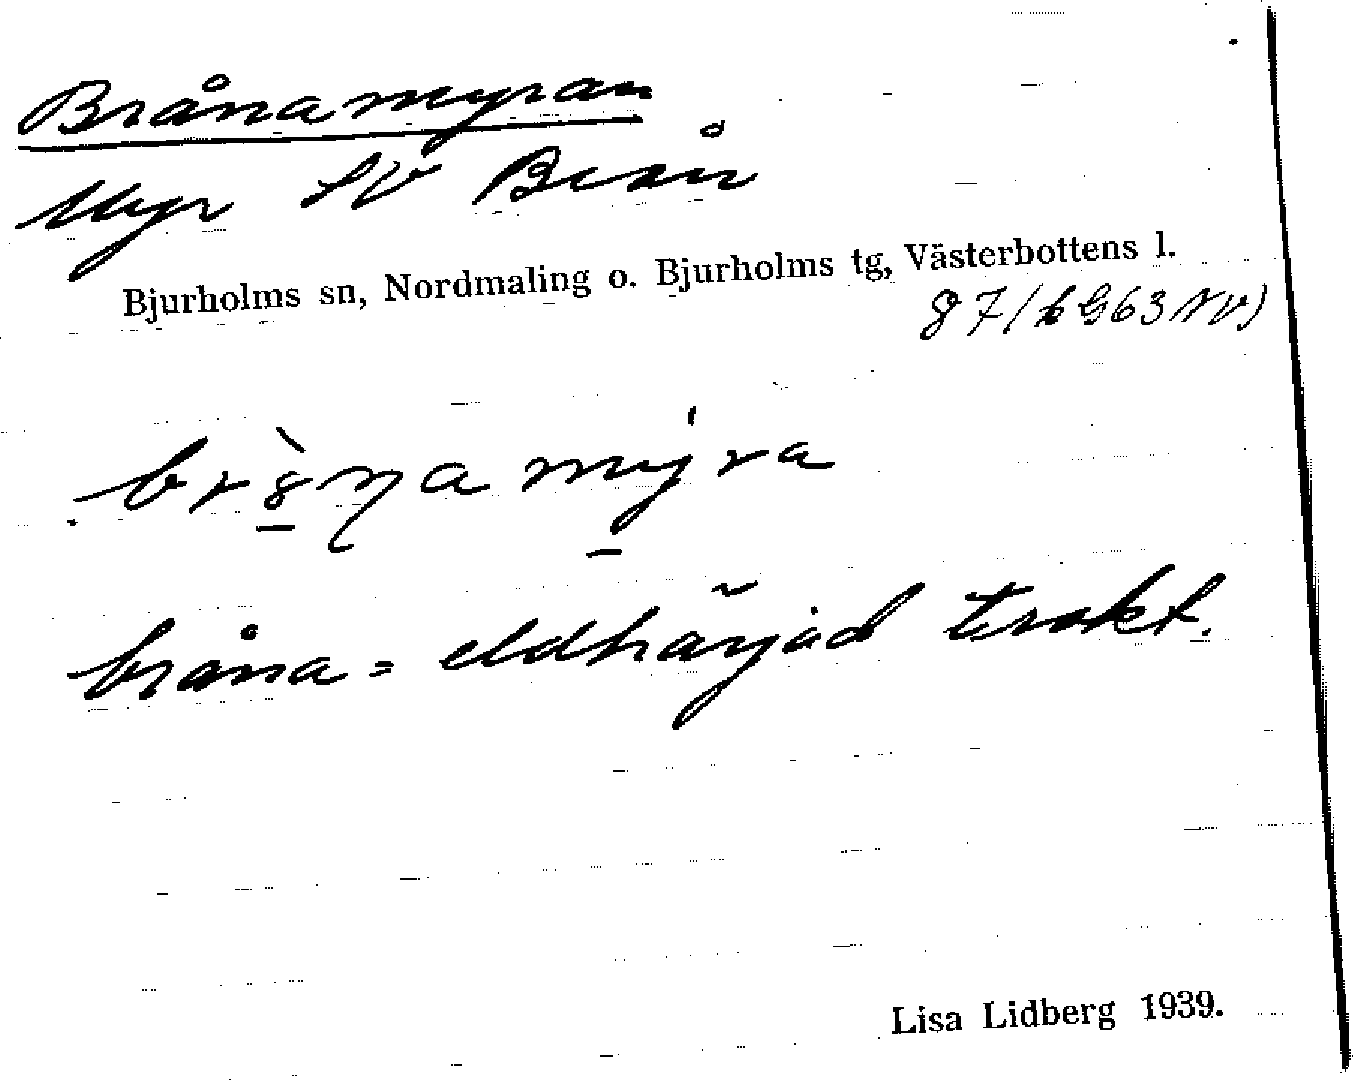 Brånamyran
Myr SV Brån
Bjurholms sn, Nordmaling o. Bjurholms tg, Västerbottens l.
87/h G63 NV)
br8̱̀ŋa mý̱ra
bråna = eldhärjad trakt.
Lisa Lidberg 1939.